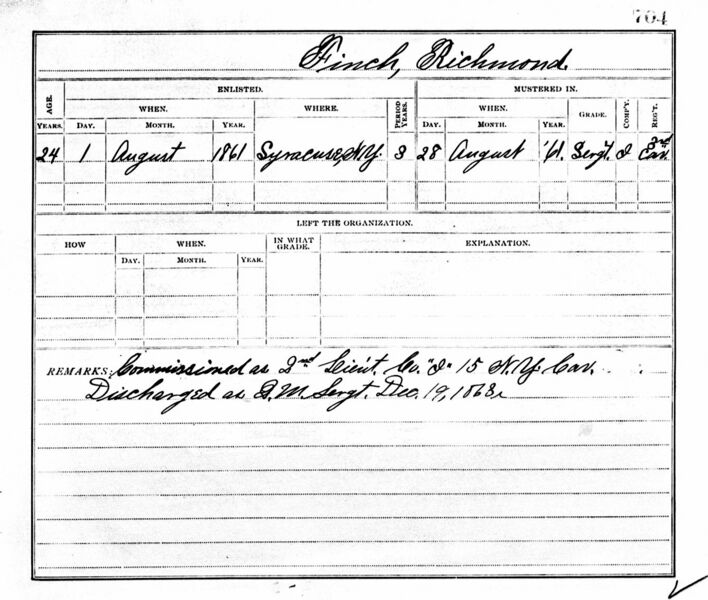 704
Finch, Richmond.
AGE. ENLISTED. MUSTERED IN.
WHEN. WHERE. PERIOD YEARS. WHEN. GRADE. COMP'Y. REG'T.
YEARS. DAY. MONTH. YEAR. DAY. MONTH. YEAR.
24 1 August 1861 Syracuse, N.Y. 3 28 August '61. Sergt. I 3rd Cav.
LEFT THE ORGANIZATION.
HOW WHEN. IN WHAT GRADE. EXPLANATION.
DAY. MONTH. YEAR.
REMARKS: Commissioned as 2nd Lieut. Co. "I" 15 N.Y. Cav.
Discharged as Q.M. Sergt. Dec. 19, 1863.